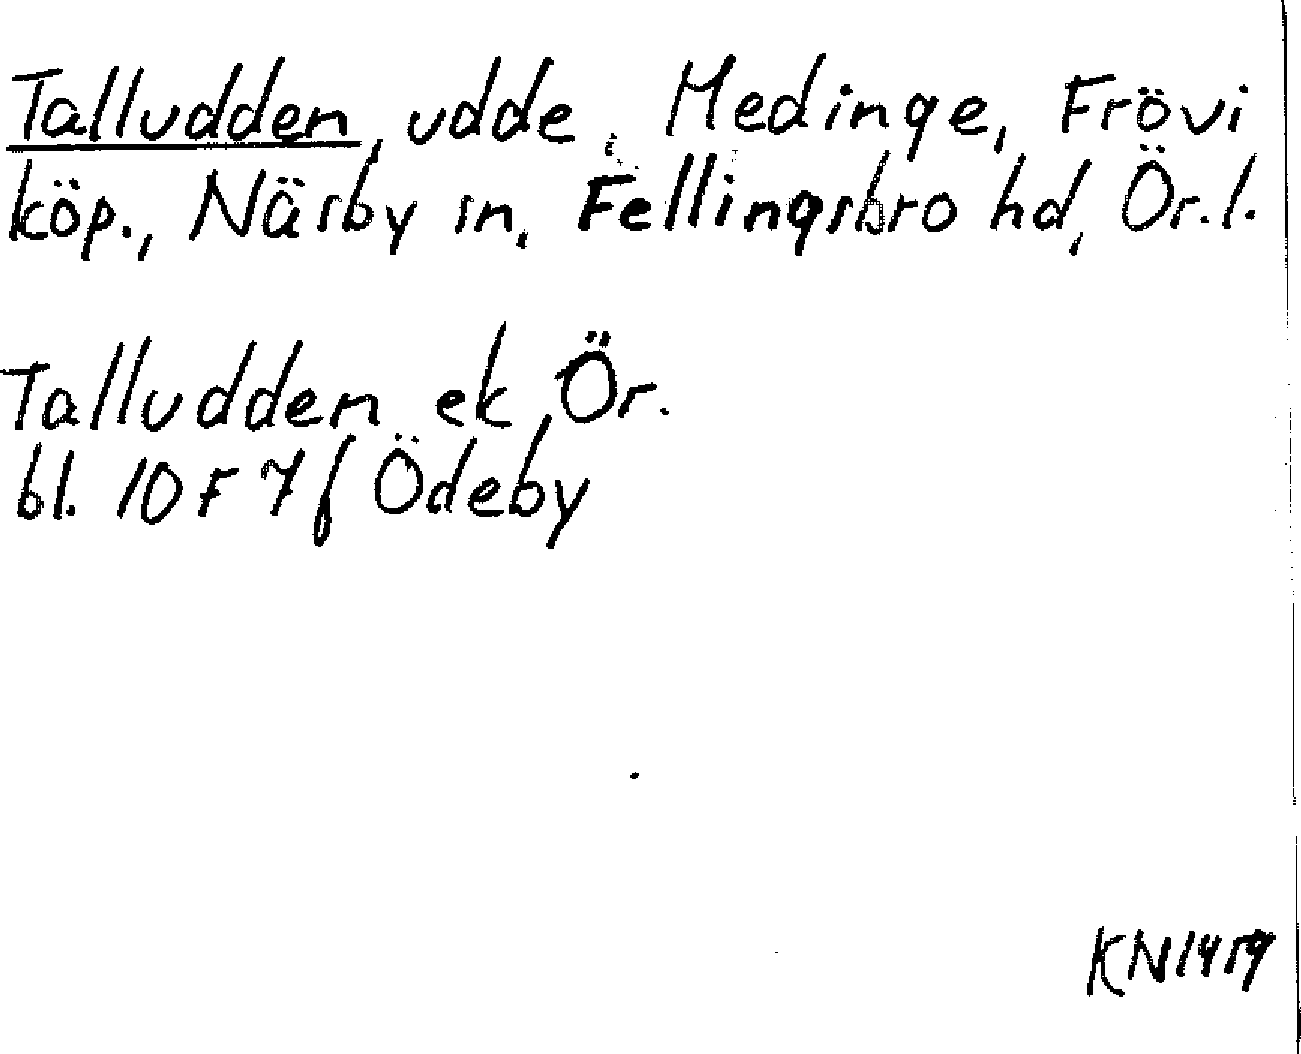 Talludden, udde, Medinge, Frövi
köp., Näsby sn, Fellingsbro hd, Ör.l.
Talludden ek, Ör.
bl. 10 F 7 f Ödeby
KN1419